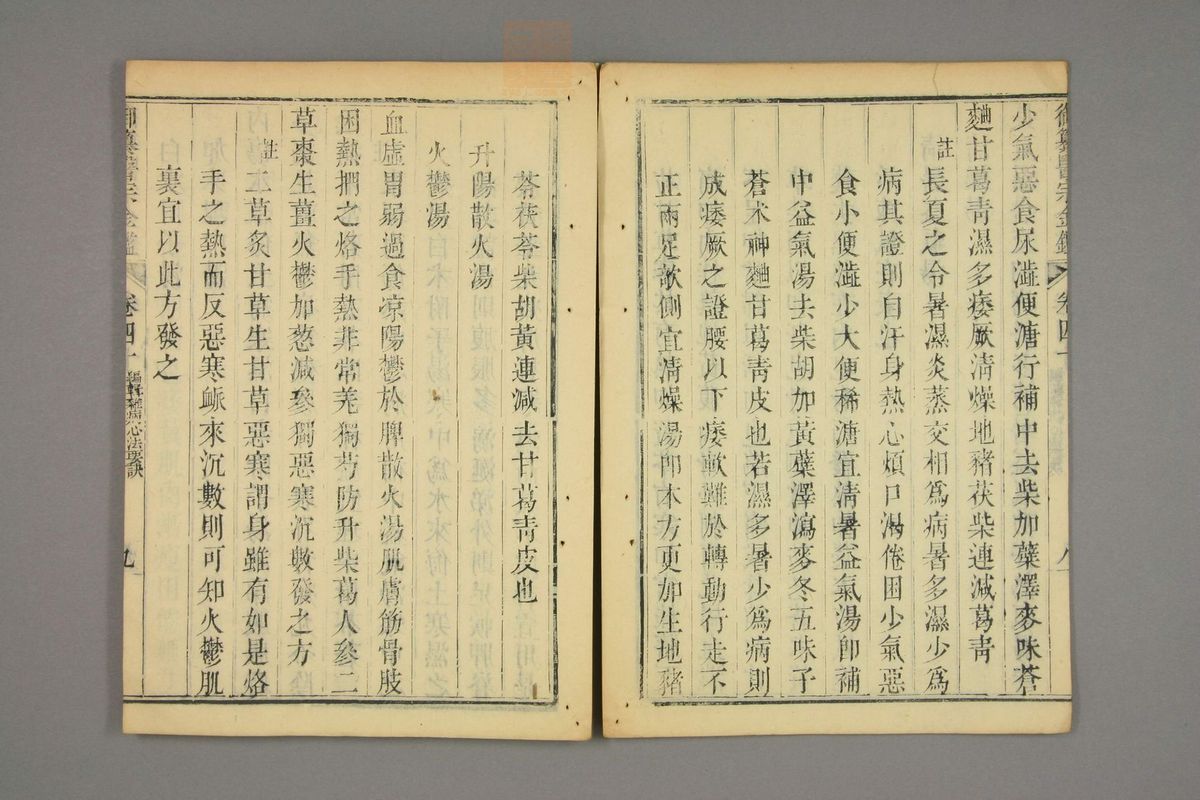 御纂醫宗金鑑 卷四十 八
少氣惡食尿澁便溏行補中去柴加蘗澤麥味蒼
麯甘葛靑濕多痿厥淸燥地豬茯柴連減葛靑
註
長夏之令暑濕炎蒸交相爲病暑多濕少爲
病其證則自汗身熱心煩口渴倦困少氣惡
食小便澁少大便稀溏宜淸暑益氣湯卽補
中益氣湯去柴胡加黃蘗澤瀉麥冬五味子
蒼术神麯甘葛靑皮也若濕多暑少爲病則
成痿厥之證腰以下痿軟難於轉動行走不
正兩足欹側宜淸燥湯卽本方更加生地豬
苓茯苓柴胡黃連減去甘葛靑皮也
升陽散火湯
火鬱湯
血虛胃弱過食凉陽鬱於脾散火湯肌膚筋骨肢
困熱捫之烙手熱非常羌獨芍防升柴葛人參二
草棗生薑火鬱加葱減參獨惡寒沉數發之方
註
二草炙甘草生甘草惡寒謂身雖有如是烙
手之熱而反惡寒脈來沉數則可知火鬱肌
裏宜以此方發之
御纂醫宗金鑑 卷四十 編輯雜病心法要訣 九